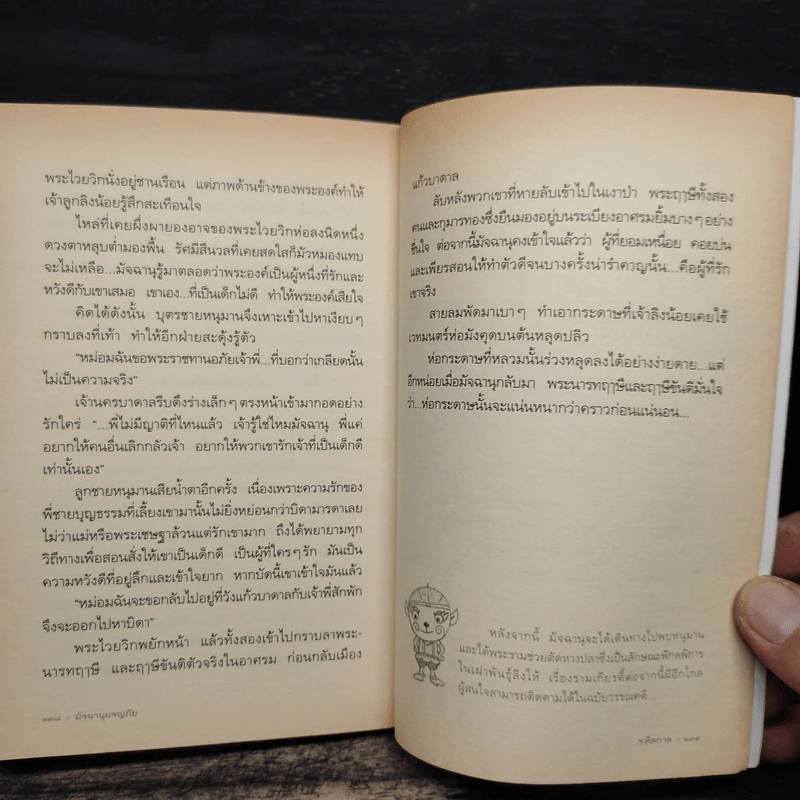 พระไวยวิกนั่งอยู่ชานเรือน แต่ภาพด้านข้างของพระองค์ทำให้
เจ้าลูกลิงน้อยรู้สึกสะเทือนใจ
ไหล่ที่เคยผึ่งผายองอาจของพระไวยวิกห่อลงนิดหนึ่ง
ดวงตาหลุบต่ำมองพื้น รัศมีสีนวลที่เคยสดใสก็มัวหมองแทบ
จะไม่เหลือ...มัจฉานุรู้มาตลอดว่าพระองค์เป็นผู้หนึ่งที่รักและ
หวังดีกับเขาเสมอ เขาเอง...ที่เป็นเด็กไม่ดี ทำให้พระองค์เสียใจ
คิดได้ดังนั้น บุตรชายหนุมานจึงเหาะเข้าไปหาเงียบๆ
กราบลงที่เท้า ทำให้อีกฝ่ายสะดุ้งรู้ตัว
“หม่อมฉันขอพระราชทานอภัยเจ้าพี่...ที่บอกว่าเกลียดนั้น
ไม่เป็นความจริง”
เจ้านครบาดาลรีบดึงร่างเล็กๆ ตรงหน้าเข้ามากอดอย่าง
รักใคร่ “...พี่ไม่มีญาติที่ไหนแล้ว เจ้ารู้ใช่ไหมมัจฉานุ พี่แค่
อยากให้คนอื่นเลิกกลัวเจ้า อยากให้พวกเขารักเจ้าที่เป็นเด็กดี
เท่านั้นเอง”
ลูกชายหนุมานเสียน้ำตาอีกครั้ง เนื่องเพราะความรักของ
พี่ชายบุญธรรมที่เลี้ยงเขามานั้นไม่ยิ่งหย่อนกว่าบิดามารดาเลย
ไม่ว่าแม่หรือพระเชษฐาล้วนแต่รักเขามาก ถึงได้พยายามทุก
วิถีทางเพื่อสอนสั่งให้เขาเป็นเด็กดี เป็นผู้ที่ใครๆ รัก มันเป็น
ความหวังดีที่อยู่ลึกและเข้าใจยาก หากบัดนี้เขาเข้าใจมันแล้ว
“หม่อมฉันจะขอกลับไปอยู่ที่วังแก้วบาดาลกับเจ้าพี่สักพัก
จึงจะออกไปหาบิดา”
พระไวยวิกพยักหน้า แล้วทั้งสองเข้าไปกราบลาพระ-
นารทฤๅษี และฤๅษีขันติตัวจริงในอาศรม ก่อนกลับเมือง
๑๓๘ - มัจฉานุผจญภัย
แก้วบาดาล
ลับหลังพวกเขาที่หายลับเข้าไปในเงาป่า พระฤๅษีทั้งสอง
ตนและกุมารทองซึ่งยืนมองอยู่บนระเบียงอาศรมยิ้มบางๆ อย่าง
ชื่นใจ ต่อจากนี้มัจฉานุคงเข้าใจแล้วว่า ผู้ที่ยอมเหนื่อย คอยบ่น
และเพียรสอนให้ทำตัวดีจนบางครั้งน่ารำคาญนั้น...คือผู้ที่รัก
เขาจริง
สายลมพัดมาเบาๆ ทำเอากระดาษที่เจ้าลิงน้อยเคยใช้
เวทมนตร์ห่อมังคุดบนต้นหลุดปลิว
ห่อกระดาษที่หลวมนั้นร่วงหลุดลงได้อย่างง่ายดาย...แต่
อีกหน่อยเมื่อมัจฉานุกลับมา พระนารทฤๅษีและฤๅษีขันติมั่นใจ
ว่า...ห่อกระดาษนั้นจะแน่นหนากว่าคราวก่อนแน่นอน...
หลังจากนี้ มัจฉานุจะได้เดินทางไปพบหนุมาน
และได้พระรามช่วยตัดหางปลาซึ่งเป็นลักษณะพิกลพิการ
ในเผ่าพันธุ์ลิงให้ เรื่องรามเกียรติ์ต่อจากนี้มีอีกไกล
ผู้สนใจสามารถติดตามได้ในฉบับวรรณคดี...
๑๓๙